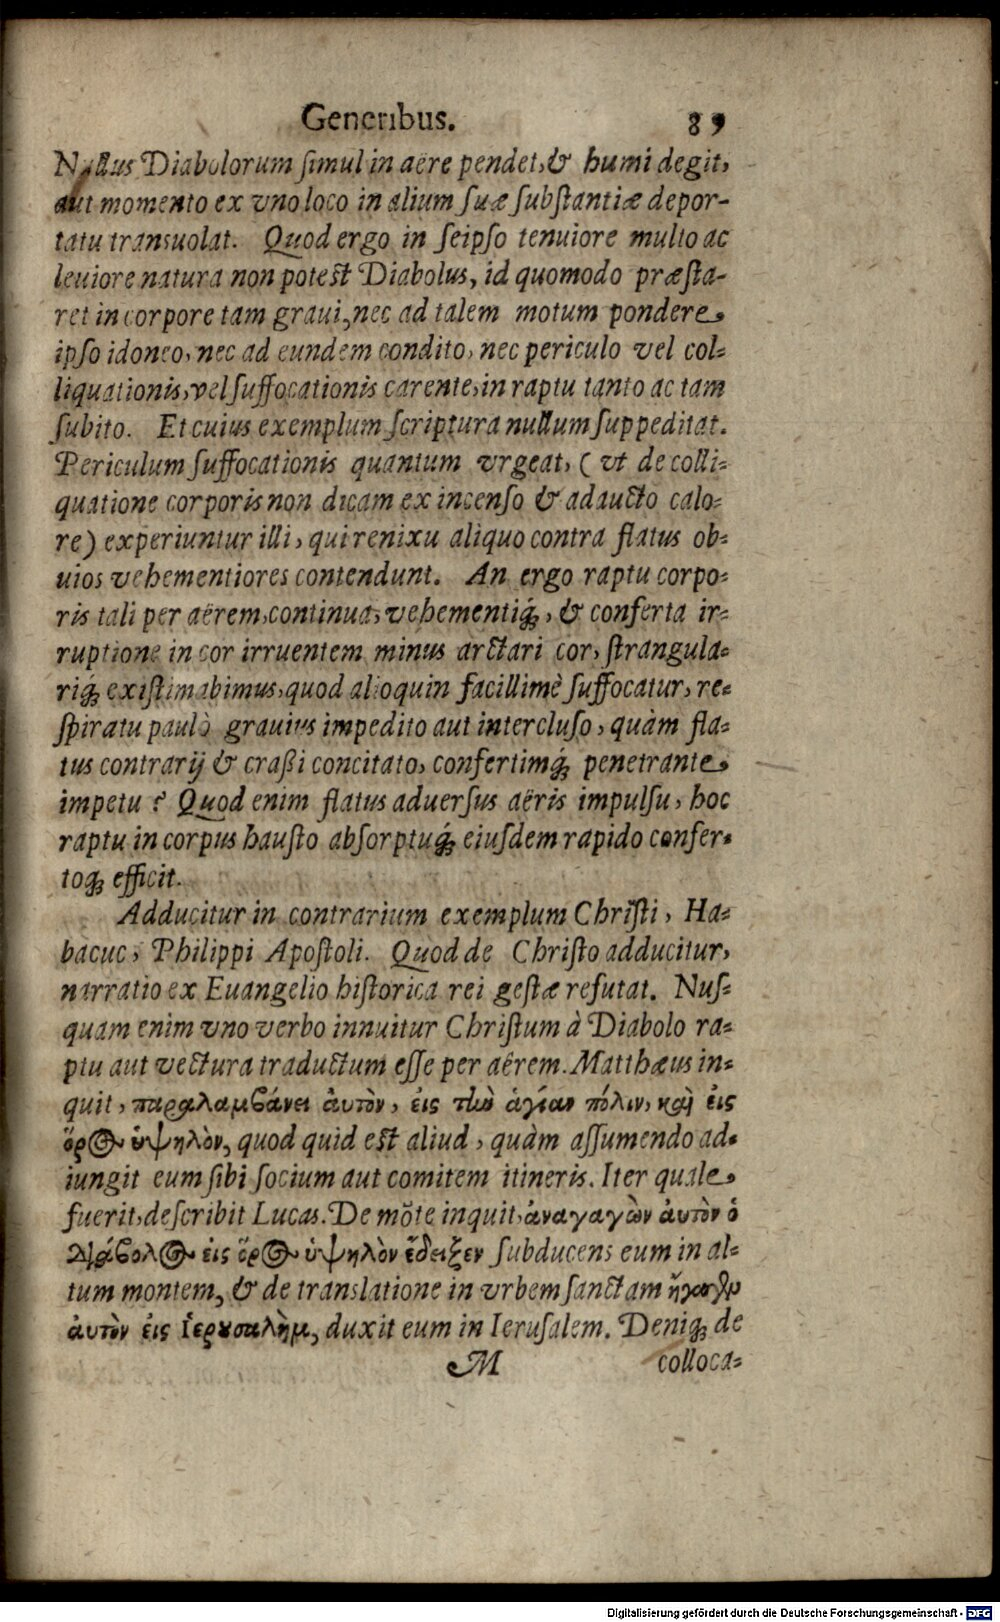 Generibus. 89
Nullus Diabolorum ſimul in aëre pendet, & humi degit,
aut momento ex vno loco in alium ſuæ ſubſtantiæ depor-
tatu transuolat. Quod ergo in ſeipſo tenuiore multo ac
leuiore natura non poteſt Diabolus, id quomodo præſta-
ret in corpore tam graui, nec ad talem motum pondere
ipſo idoneo, nec ad eundem condito, nec periculo vel col-
liquationis, vel ſuffocationis carente, in raptu tanto ac tam
ſubito. Et cuius exemplum ſcriptura nullum ſuppeditat.
Periculum ſuffocationis quantum vrgeat, (vt de colli-
quatione corporis non dicam ex incenſo & adaucto calo-
re) experiuntur illi, qui renixu aliquo contra flatus ob-
uios vehementiores contendunt. An ergo raptu corpo-
ris tali per aërem, continua, vehementiq́;, & conferta ir-
ruptione in cor irruentem minus arctari cor, ſtrangula-
riq́; exiſtimabimus, quod alioquin facillimè ſuffocatur, re-
ſpiratu paulò grauius impedito aut intercluſo, quàm fla-
tus contrarij & craſſi concitato, confertimq́; penetrante
impetu? Quod enim flatus aduerſus aëris impulſu, hoc
raptu in corpus hauſto abſorptuq́; eiuſdem rapido confer-
toq́; efficit.
Adducitur in contrarium exemplum Chriſti, Ha-
bacuc, Philippi Apoſtoli. Quod de Chriſto adducitur,
narratio ex Euangelio hiſtorica rei geſtæ refutat. Nuſ-
quam enim vno verbo innuitur Chriſtum à Diabolo ra-
ptu aut vectura traductum eſſe per aërem. Matthæus in-
quit, παραλαμβάνει ἀυτὸν, ἐις τὴν ἁγίαν πόλιν, καὶ ἐις
ὄρος ὑψηλὸν, quod quid eſt aliud, quàm aſſumendo ad-
iungit eum ſibi ſocium aut comitem itineris. Iter quale
fuerit, deſcribit Lucas. De mõte inquit, ἀναγαγὼν ἀυτὸν ὁ
διάβολος ἐις ὄρος ὑψηλὸν ἔδειξεν ſubducens eum in al-
tum montem, & de translatione in vrbem ſanctam ἤγαγεν
ἀυτὸν ἐις Ἱερουσαλὴμ, duxit eum in Ieruſalem. Deniq; de
M colloca-
Digitalisierung gefördert durch die Deutsche Forschungsgemeinschaft - DFG